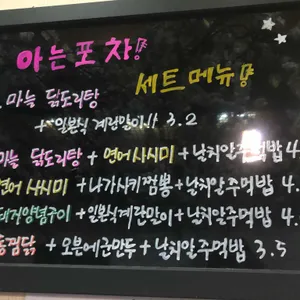 아는포차
세트메뉴
마늘 닭도리탕
+ 일본식 계란말이사 3.2
마늘 닭도리탕 + 연어사시미 + 날치알주먹밥 4.
연어사시미 + 나가사키짬뽕 + 날치알주먹밥 4.
양념구이 + 일본식계란말이 + 날치알주먹밥 4.
찜닭 + 오븐에군만두 + 날치알주먹밥 3.5